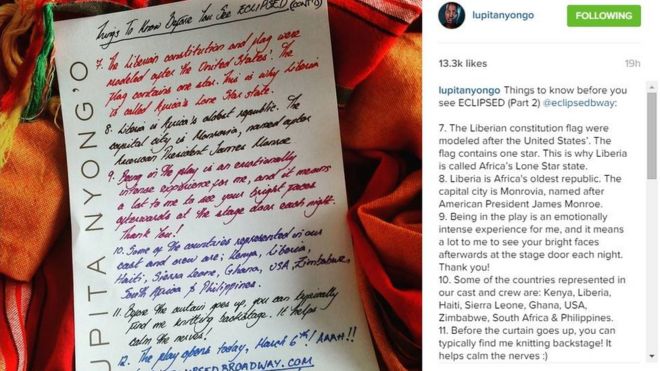 Things To Know Before You See ECLIPSED (CONT'D)
7. The Liberian constitution and flag were
modeled after the United States'. The
flag contains one star. This is why Liberia
is called Africa's Lone Star state.
8. Liberia is Africa's oldest republic. The
capital city is Monrovia, named after
American President James Monroe
9. Being in the play is an emotionally
intense experience for me, and it means
a lot to me to see your bright faces
afterwards at the stage door each night.
Thank You!
10. Some of the countries represented in our
cast and crew are: Kenya, Liberia,
Haiti, Sierra Leone, Ghana, USA, Zimbabwe,
South Africa & Philippines.
11. Before the curtain goes up, you can typically
find me knitting backstage. It helps
calm the nerves!
12. The play opens today, March 6th! AAAH!!
LIPSEDBROADWAY.COM
UPITA NYONG'O
lupitanyongo
FOLLOWING
13.3k likes 19h
lupitanyongo Things to know before you
see ECLIPSED (Part 2) @eclipsedbway:
7. The Liberian constitution flag were
modeled after the United States'. The
flag contains one star. This is why Liberia
is called Africa's Lone Star state.
8. Liberia is Africa's oldest republic. The
capital city is Monrovia, named after
American President James Monroe.
9. Being in the play is an emotionally
intense experience for me, and it means
a lot to me to see your bright faces
afterwards at the stage door each night.
Thank you!
10. Some of the countries represented in
our cast and crew are: Kenya, Liberia,
Haiti, Sierra Leone, Ghana, USA,
Zimbabwe, South Africa & Philippines.
11. Before the curtain goes up, you can
typically find me knitting backstage! It
helps calm the nerves :)